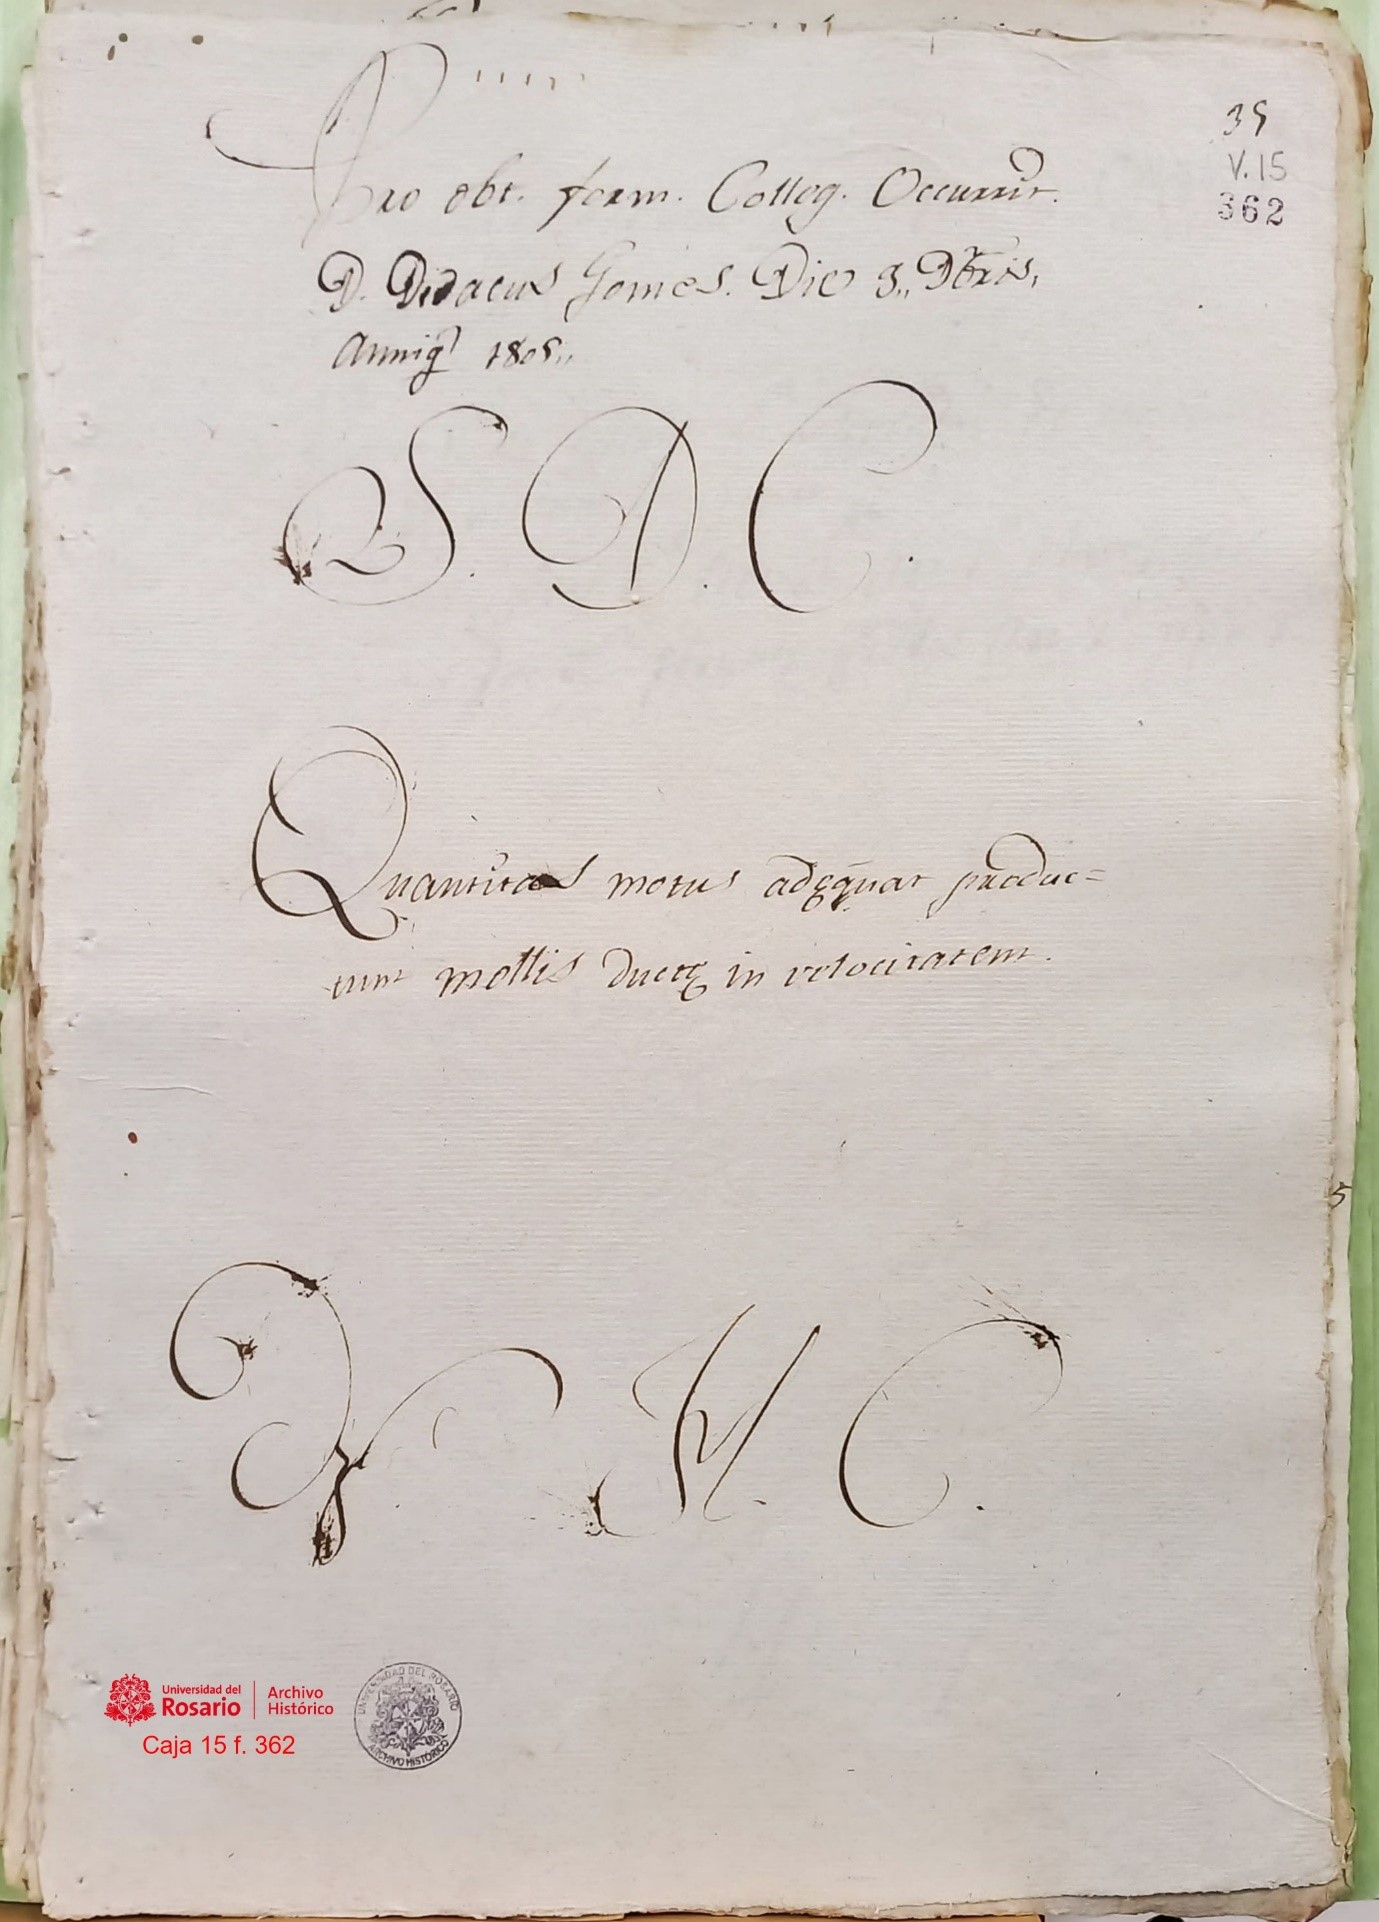 35
V.15
362
Pro obt. form. Colleg. Occurrit.
D. Didacus Gomes. Die 3,, Dbris,
Anniq 1805,,
S. D. C.
Quantitas motus adęquat produc=
tum mollis ductę in velocitatem.
V. M. C.
5
Universidad del Rosario | Archivo Histórico
Caja 15 f. 362
UNIVERSIDAD DEL ROSARIO
ARCHIVO HISTÓRICO